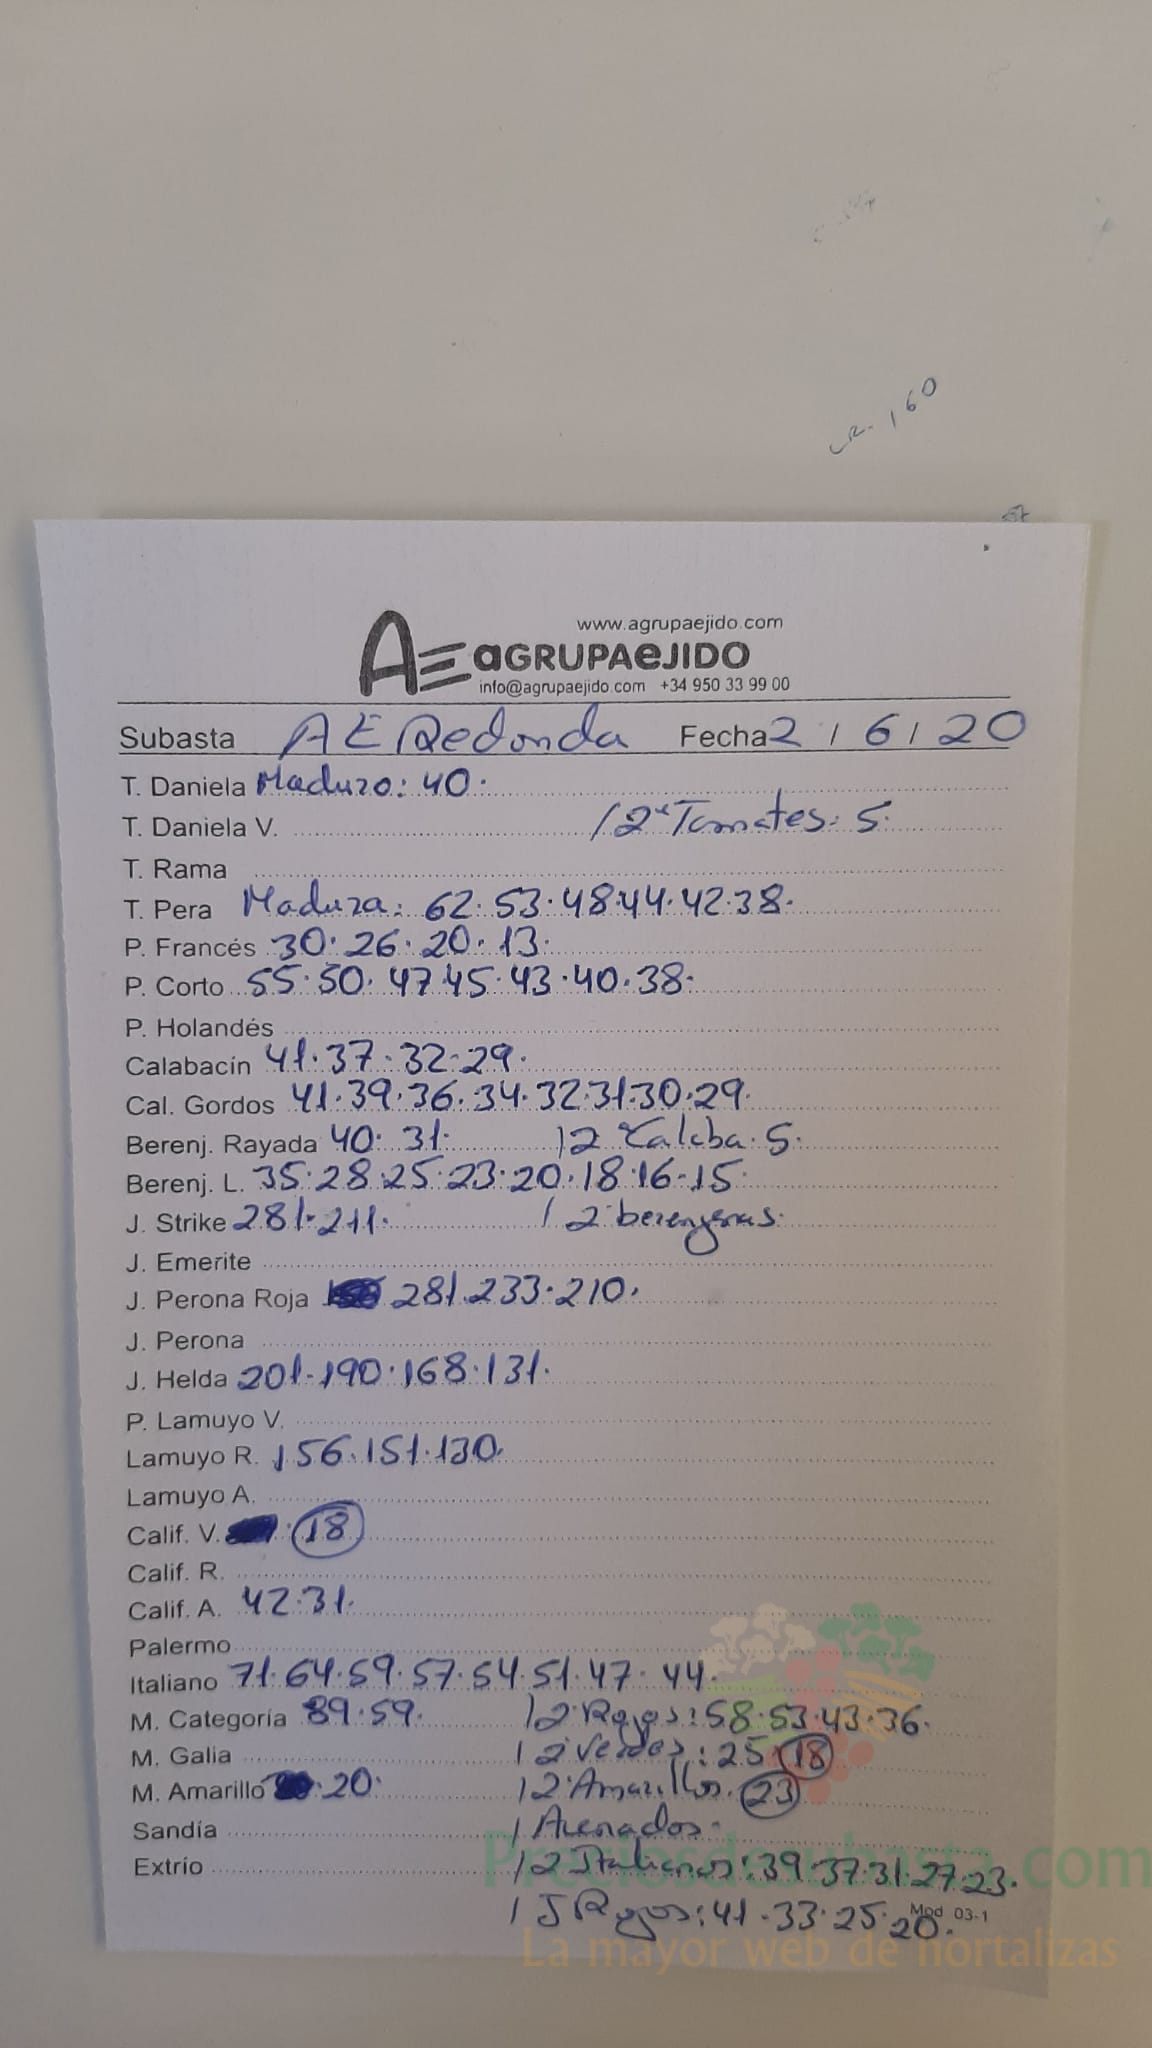 LR. 160
www.agrupaejido.com
AE aGRUPAeJIDO
info@agrupaejido.com +34 950 33 99 00
Subasta AE Redonda Fecha 2 / 6 / 20
T. Daniela Maduro: 40.
T. Daniela V. / 2ª Tomates: 5.
T. Rama
T. Pera Madura: 62.53.48.44.42.38.
P. Francés 30.26.20.13.
P. Corto 55.50.47.45.43.40.38.
P. Holandés
Calabacín 41.37.32.29.
Cal. Gordos 41.39.36.34.32.31.30.29.
Berenj. Rayada 40.31. / 2 Calaba. 5.
Berenj. L. 35.28.25.23.20.18.16.15.
J. Strike 281.211. / 2 berenjenas.
J. Emerite
J. Perona Roja 281.233.210.
J. Perona
J. Helda 201.190.168.131.
P. Lamuyo V.
Lamuyo R. 156.151.130.
Lamuyo A.
Calif. V. 18
Calif. R.
Calif. A. 42.31.
Palermo
Italiano 71.64.59.57.54.51.47.44.
M. Categoría 89.59. / 2 Rojos: 58.53.43.36.
M. Galia / 2 Verdes: 25 18
M. Amarillo 20. / 2 Amarillos. 23
Sandía / Arenados.
Extrío / 2 Italianos: 39.37.31.27.23.
/ J Rojos: 41.33.25.20.
Mod 03-1
Preciosdesubasta.com
La mayor web de hortalizas